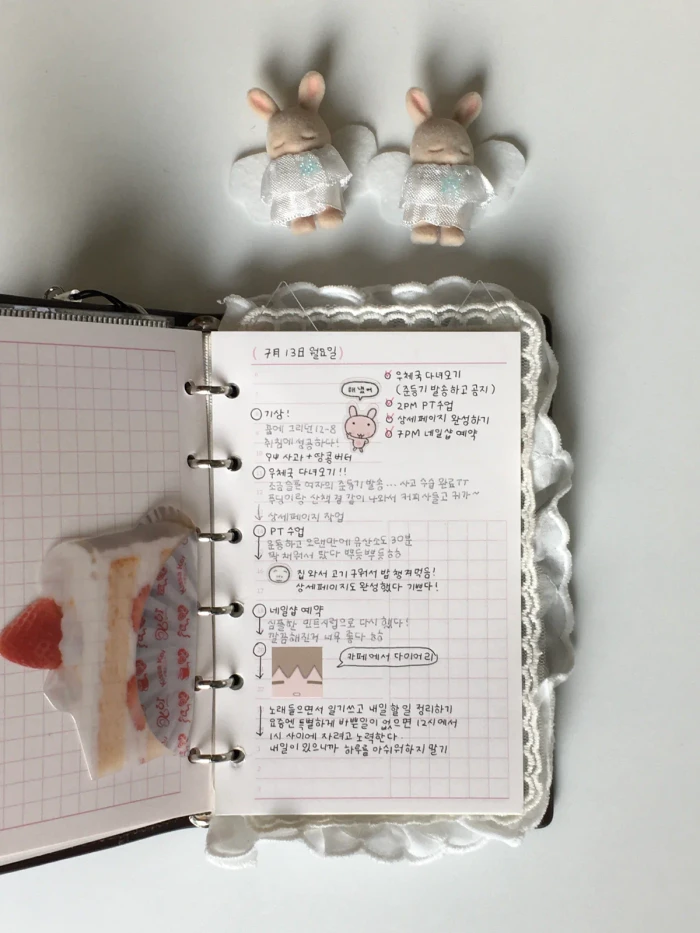 ( 7月 13日 월요일 )
우체국 다녀오기
(준등기 발송하고 공지)
2PM PT수업
상세페이지 완성하기
7PM 네일샵 예약
해냈어
기상!
꿈에 그리던 12-8
취침에 성공하다!
9시 사과+땅콩버터
우체국 다녀오기!!
조금 늦은 여자의 준등기 발송... 사고 수습 완료TT
푸딩이랑 산책 겸 같이 나와서 커피사들고 귀가~
상세페이지 작업
PT 수업
운동하고 오랜만에 유산소도 30분
딱 채워서 했다 뿌듯뿌듯
집 와서 고기 구워서 밥 챙겨먹음!
상세페이지도 완성했다 기쁘다!
네일샵 예약
심플한 민트시럽으로 다시 했다!
깔끔해진거 너무 좋다
카페에서 다이어리
노래들으면서 일기쓰고 내일 할 일 정리하기
요즘엔 특별하게 바쁜일이 없으면 12시에서
1시 사이에 자려고 노력한다.
내일이 있으니까 하루를 아쉬워하지 말기